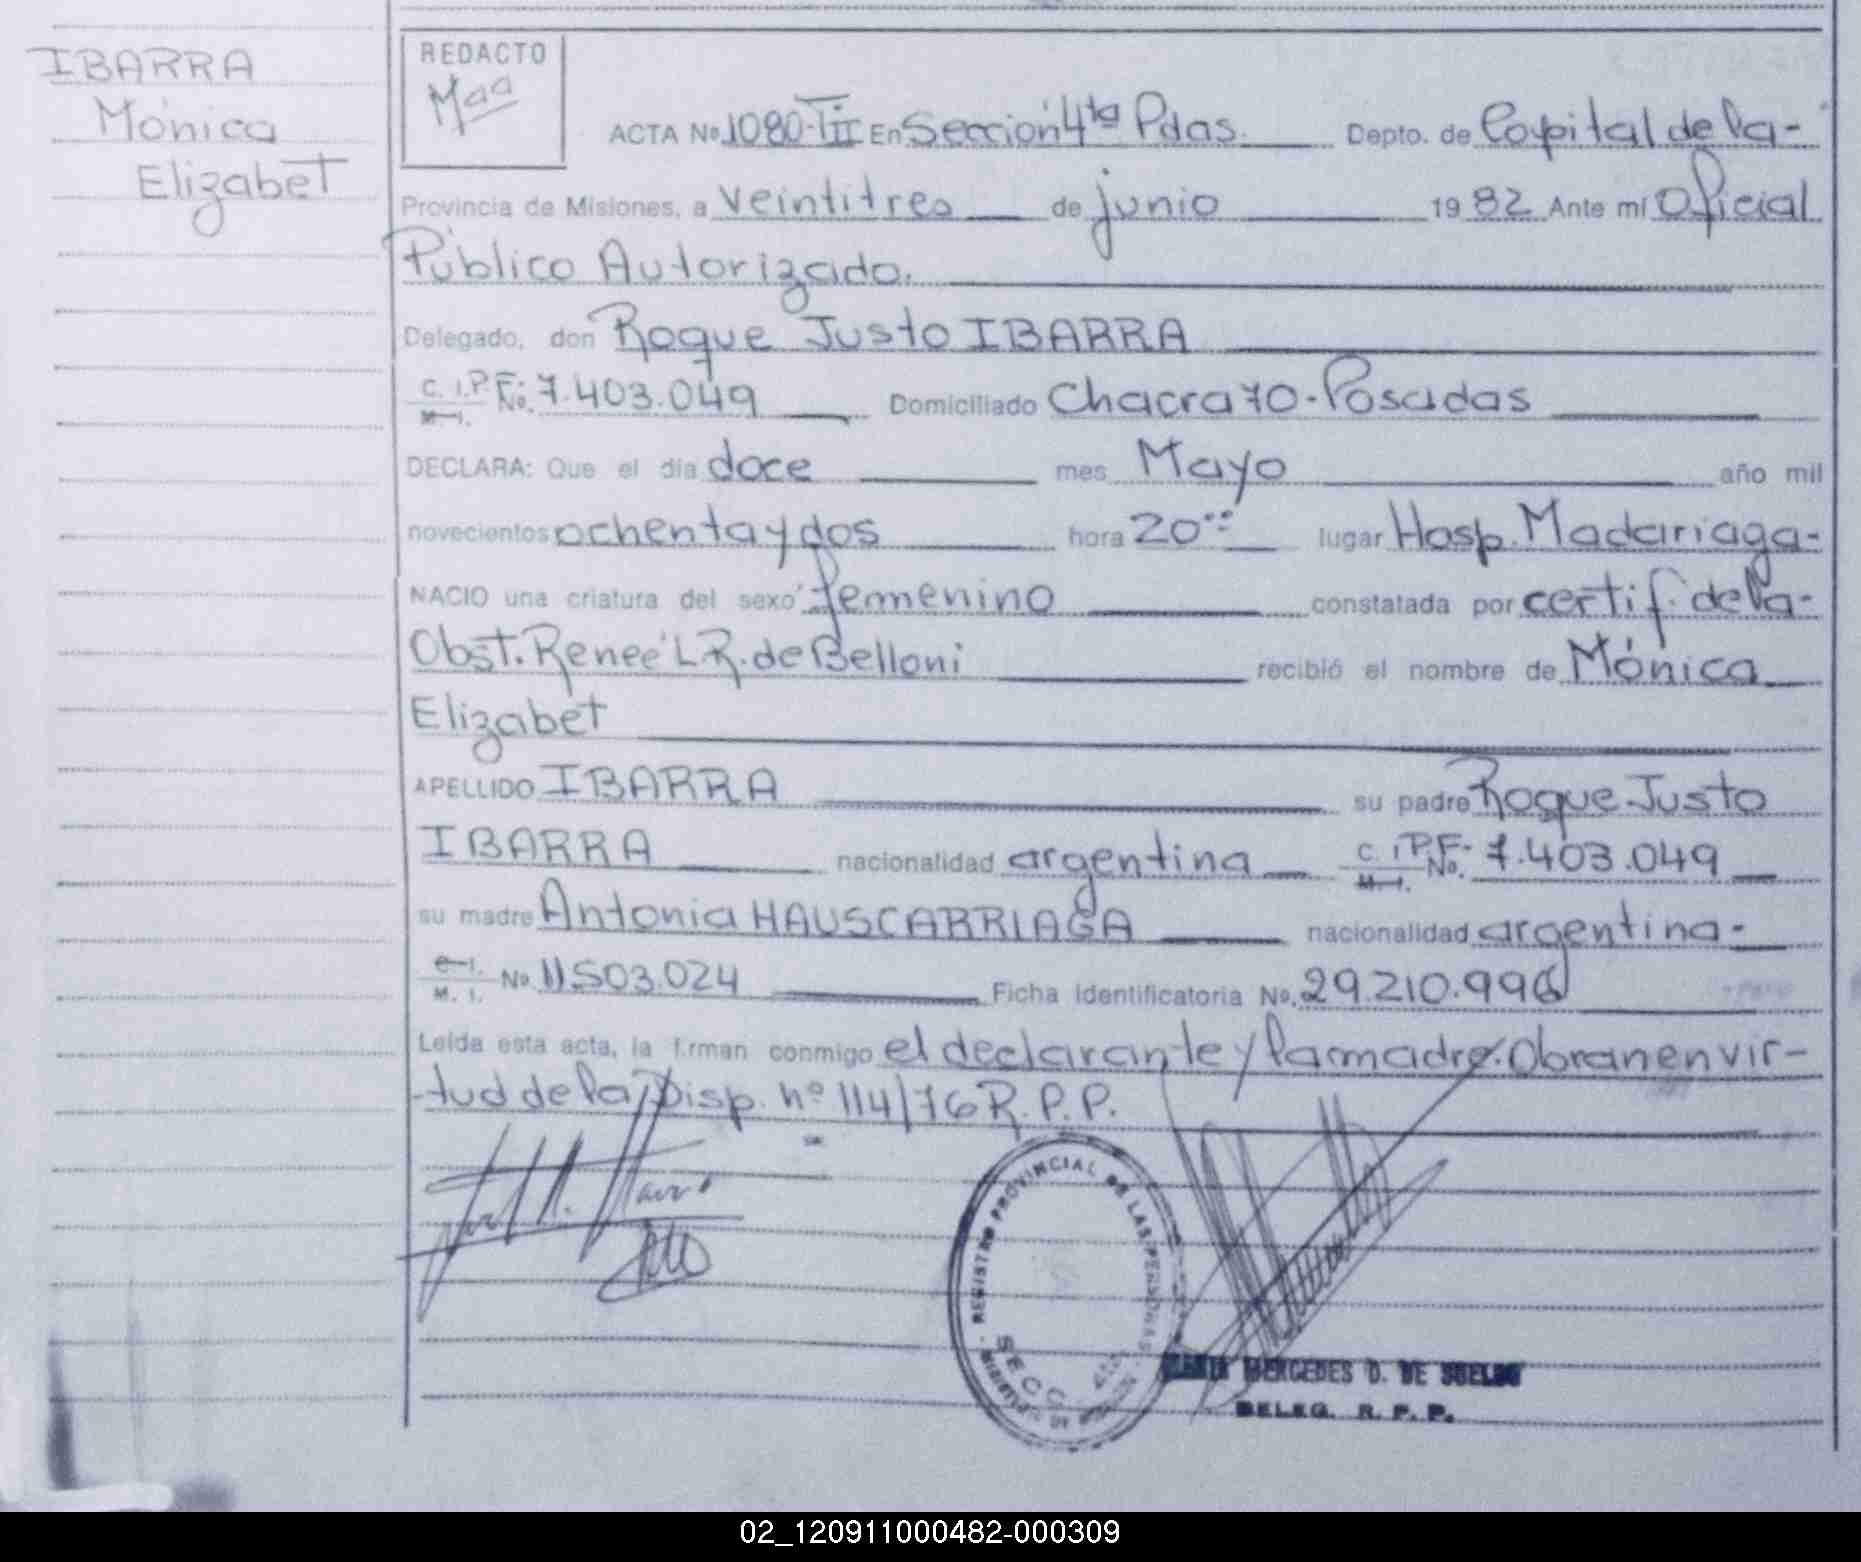 IBARRA
Mónica
Elizabet
REDACTO
ACTA No 1080-TII En Sección 4ta Pdas. Depto. de Capital de la-
Provincia de Misiones, a veintitres de junio 1982 Ante mí Oficial
Público Autorizado.
Delegado, don Roque Justo IBARRA
C. I.P.F. No. 7.403.049 Domiciliado Chacra 70-Posadas
M. I.
DECLARA: Que el día doce mes Mayo año mil
novecientos ochenta y dos hora 20 lugar Hosp. Madariaga-
NACIO una criatura del sexo femenino constatada por certif. de la-
Obst. Reneé L.R. de Belloni recibió el nombre de Mónica
Elizabet
APELLIDO IBARRA su padre Roque Justo
IBARRA nacionalidad argentina C. I.P.F. No. 7.403.049
M. I.
su madre Antonia HAUSCARRIAGA nacionalidad argentina-
C. I.
M. I. No 11.503.024 Ficha Identificatoria No. 29.210.996
Leída esta acta, la firman conmigo el declarante y la madre. Obran en vir-
tud de la Disp. nº 114/76 R.P.P.
REGISTRO PROVINCIAL DE LAS PERSONAS
SECC
MERCEDES D. DE
DELEG. R. P. P.
02_120911000482-000309